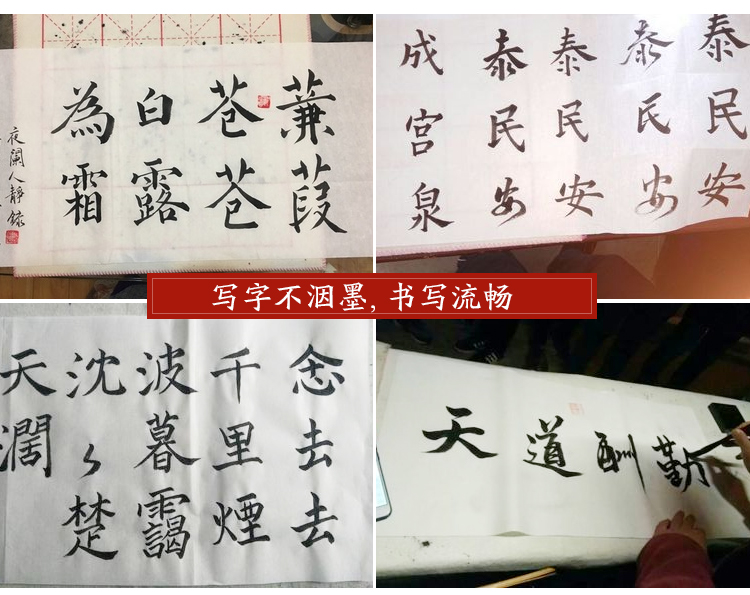 蒹葭
苍苍
白露
為霜
夜闌人靜録
泰民安
泰民安
泰民安
泰民安
成宫泉
写字不洇墨, 书写流畅
念去去
千里煙
波暮靄
沈々楚
天闊
天道酬勤